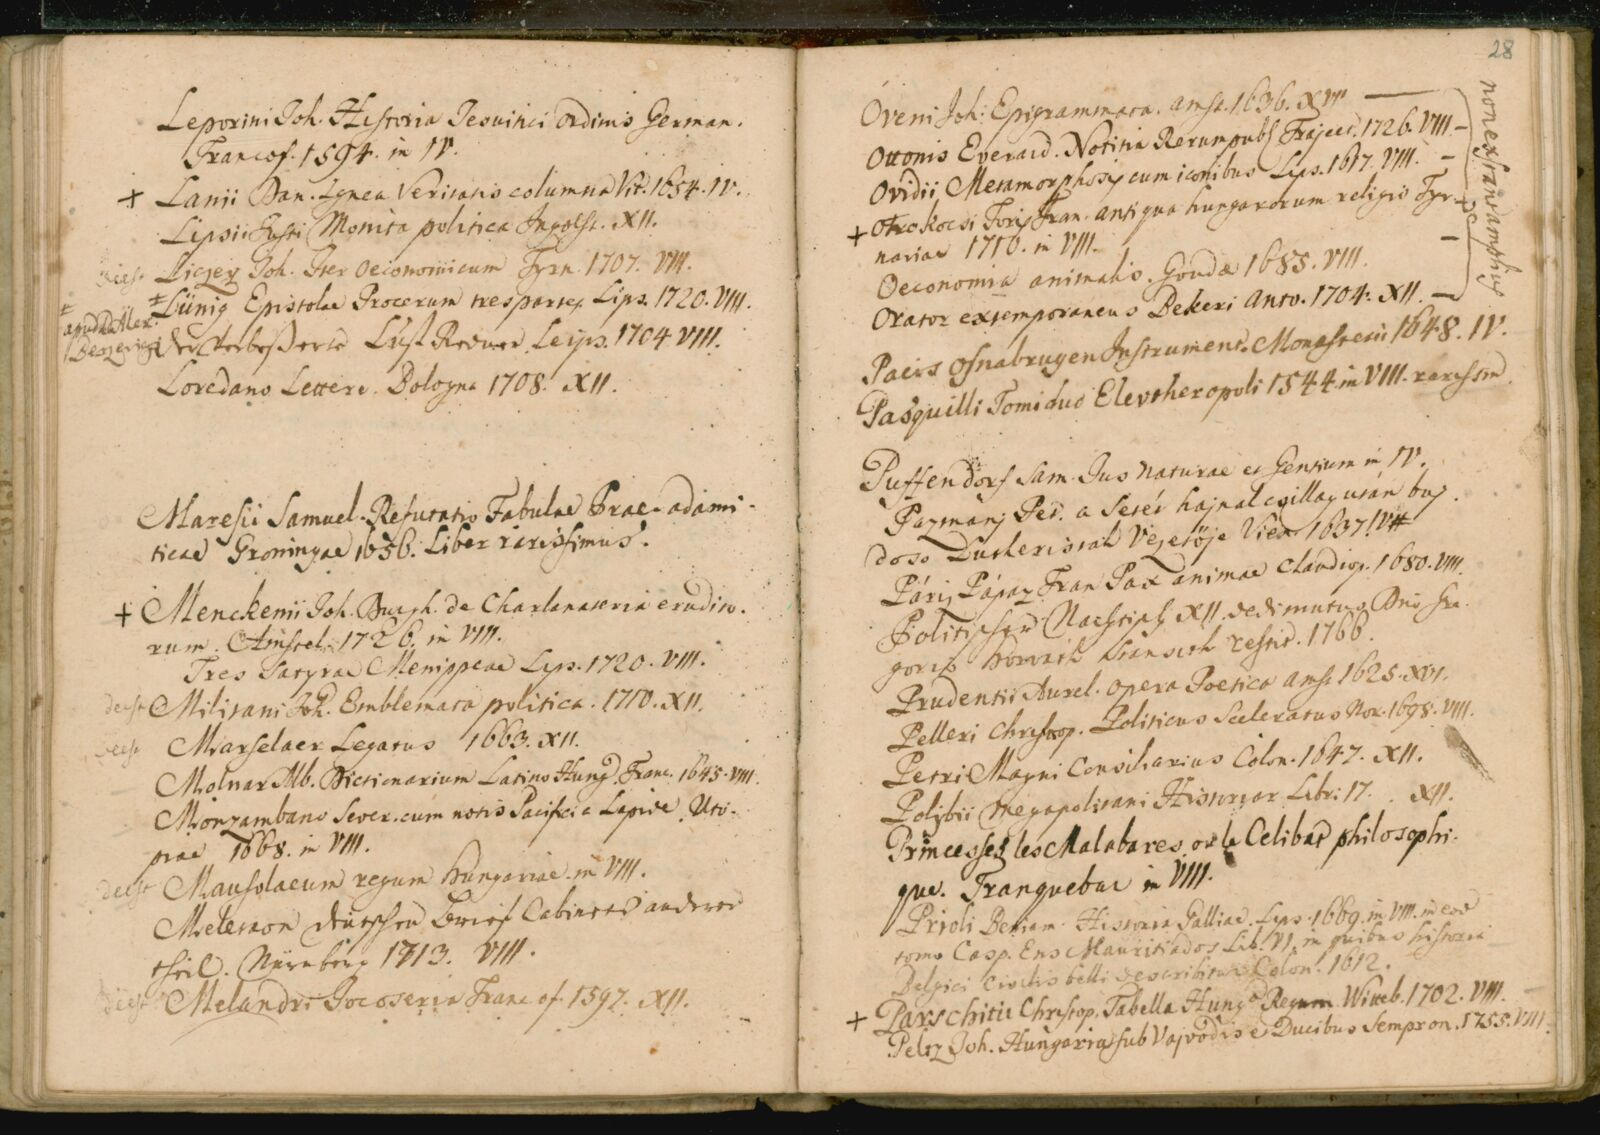 Leporini Joh. Historia Jesuitici ordinis German.
Francof. 1594. in IV.
+ Lanii Dan. Lignea Veritatis columna Vit. 1654. IV.
Lipsii Justi Monita politica Ingolst. XII.
deest Liczey Joh. Iter Oeconomicum Tyrn. 1707. VIII.
Lünig Epistolae Procerum tres partes Lips. 1720. VIII.
apud D. Alex.
Bezericzi
Der Verbesserte Lust Redner. Leips. 1704 VIII.
Loredano Lettere. Bologna 1708. XII.
Maresii Samuel. Refutatio Fabulae Prae-adami-
ticae Groningae 1656. Liber rarissimus.
+ Menckenii Joh. Burgh. de Charlataneria erudito-
rum. Amstel. 1726. in VIII.
Tres Satyrae Menippeae Lips. 1720. VIII.
deest Militani Joh. Emblemata politica. 1710. XII.
deest Marselaer Legatus 1663. XII.
Molnar Alb. Dictionarium Latino Hung. Franc. 1645. VIII.
Monzambano Sever. cum notis Pacifici a Lapide. Uto-
piae 1668. in VIII.
deest Mausolaeum regum Hungariae in VIII.
Meletaon deutschen Brief Cabinets anderer
theil. Nürnberg 1713. VIII.
deest Melandri Jocoseria Francof. 1597. XII.
28
Oveni Joh: Epigrammata. Amst. 1636. XVI
Ottonis Everard. Notitia Rerumpubl. Traject. 1726. VIII. –
Ovidii Metamorphosis cum iconibus Lips. 1617. VIII. –
+ Otrokocsi Foris Fran. antiqua hungarorum religio Tyr-
naviae 1710. in VIII.
Oeconomia animalis. Goudae 1685. VIII. –
Orator extemporaneus Bekeri Antv. 1704. XII. –
non exstant amplius
Pacis Osnabrugen Instrument. Monasterii 1648. IV.
Pasquilli Tomi duo Elevtheropoli 1544. in VIII. rarissim.
Puffendorf Sam. Jus Naturae et Gentium in IV.
Pazmanj Pet. a Setét hajnal csillag után buj-
doso Lutheristak Vezetöje Vien. 1637. VII
Páriz Pápaz Fran Pax animae Claudiop. 1680. VIII.
Politischer Nachtisch XII. dedi mutuo Dno Gre-
goris Horvath Stansith restit. 1766.
Prudentii Aurel. Opera Poetica Amst 1625. XVI.
Pelleri Christop. Politicus Sceleratus Nor. 1698. VIII.
Petri Magni Consiliarius Colon. 1647. XII.
Polybii Megapolitani Historiar Libri 17. XII.
Princesses les Malabares, ou le Celibat philosophi-
que. Tranquebar in VIII.
Prioli Beniam. Historia Galliae. Lips. 1669. in VIII. in eod
tomo Casp. Ens Mauritiados Lib. VI. in quibus historia
Belgici Civilis belli describitur Colon. 1612.
+ Parschitii Christop. Tabella Hung. Regum Witteb. 1702. VIII.
Pelcz Joh. Hungaria sub Vajvodis et Ducibus Sempron. 1755. VIII.